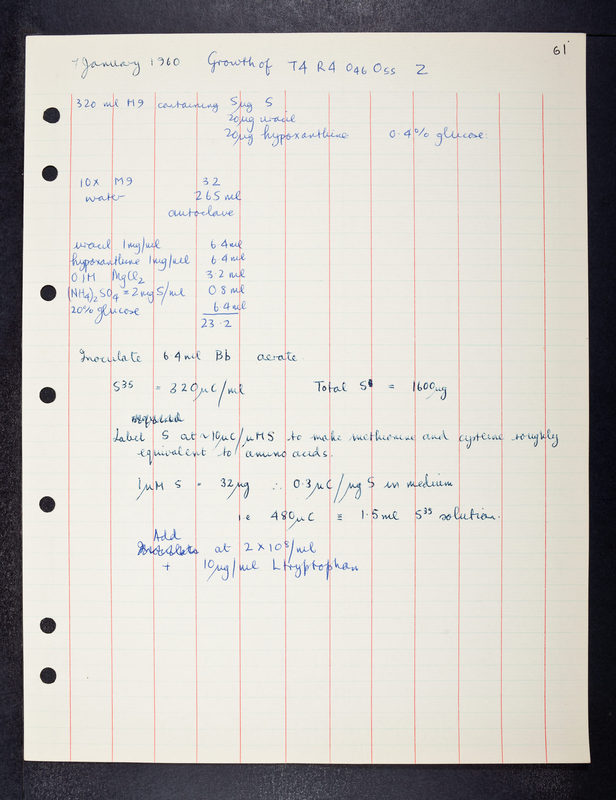 61
7 January 1960 Growth of T4 R4 O46 O55 2
320 ml M9 containing 5µg S
20µg uracil
20µg hypoxanthine 0.4% glucose.
10x M9 32
water 265 ml
autoclave
uracil 1mg/ml 6.4ml
hypoxanthine 1mg/ml 6.4ml
0.1M MgCl2 3.2 ml
(NH4)2SO4 = 2mg S/ml 0.8 ml
20% glucose 6.4ml
23.2
Inoculate 6.4 ml Bb aerate.
S35 = 320µC/ml Total S = 1600µg
Label S at ~10µC/µM S to make methionine and cysteine roughly
equivalent to amino acids.
1µM S = 32µg ∴ 0.3µC/µg S in medium
i.e 480µC ≡ 1.5ml S35 solution.
Add
at 2 x 10⁸/ml
+ 10µg/ml L tryptophan